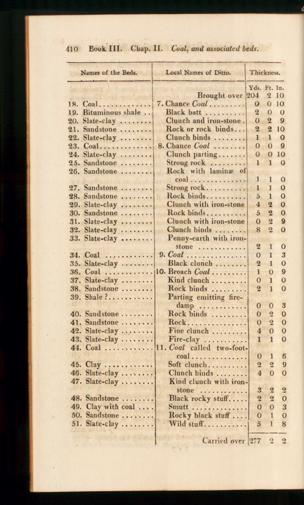 410 Book III. Chap. II. Coal, and associated beds.
Names of the Beds. Local Names of Ditto. Thickness.
Yds. Ft. In.
Brought over 204 2 10
18. Coal............ 7. Chance Coal ........ 0 0 10
19. Bituminous shale .. Black batt ........... 2 0 0
20. Slate-clay ........ Clunch and iron-stone.. 0 2 9
21. Sandstone ........ Rock or rock binds.... 2 2 10
22. Slate-clay ........ Clunch binds ......... 1 1 0
23. Coal............. 8. Chance Coal ........ 0 0 9
24. Slate-clay ........ Clunch parting........ 0 1 0
25. Sandstone ........ Strong rock .......... 1 1 0
26. Sandstone ........ Rock with laminæ of
coal.............. 1 1 0
27. Sandstone ........ Strong rock........... 1 1 0
28. Sandstone ........ Rock binds........... 3 1 0
29. Slate-clay ........ Clunch with iron-stone 4 2 0
30. Sandstone ........ Rock binds........... 5 2 0
31. Slate-clay ........ Clunch with iron-stone 0 2 9
32. Slate-clay ........ Clunch binds ......... 8 2 0
33. Slate-clay ........ Penny-earth with iron-
stone ............ 2 1 0
34. Coal ............ 9. Coal............... 0 1 3
35. Slate-clay......... Black clunch ......... 2 1 0
36. Coal ............ 10. Broach Coal........ 1 0 9
37. Slate-clay ........ Kind clunch .......... 0 1 0
38. Sandstone ........ Rock binds .......... 2 1 0
39. Shale ?........... Parting emitting fire-
damp ............ 0 0 3
40. Sandstone ........ Rock binds .......... 0 2 0
41. Sandstone ........ Rock................ 0 2 0
42. Slate-clay ........ Fine clunch .......... 4 0 0
43. Slate-clay ........ Fire-clay ............ 1 1 0
44. Coal ............ 11. Coal called two-foot-
coal.............. 0 1 6
45. Clay ............ Soft clunch........... 2 2 9
46. Slate-clay ........ Clunch binds ........ 4 0 0
47. Slate-clay ........ Kind clunch with iron-
stone ............ 3 2 2
48. Sandstone ........ Black rocky stuff...... 2 2 0
49. Clay with coal .... Smutt .............. 0 0 3
50. Sandstone ........ Rocky black stuff ..... 0 1 0
51. Slate-clay ........ Wild stuff............ 5 1 8
Carried over 277 2 2